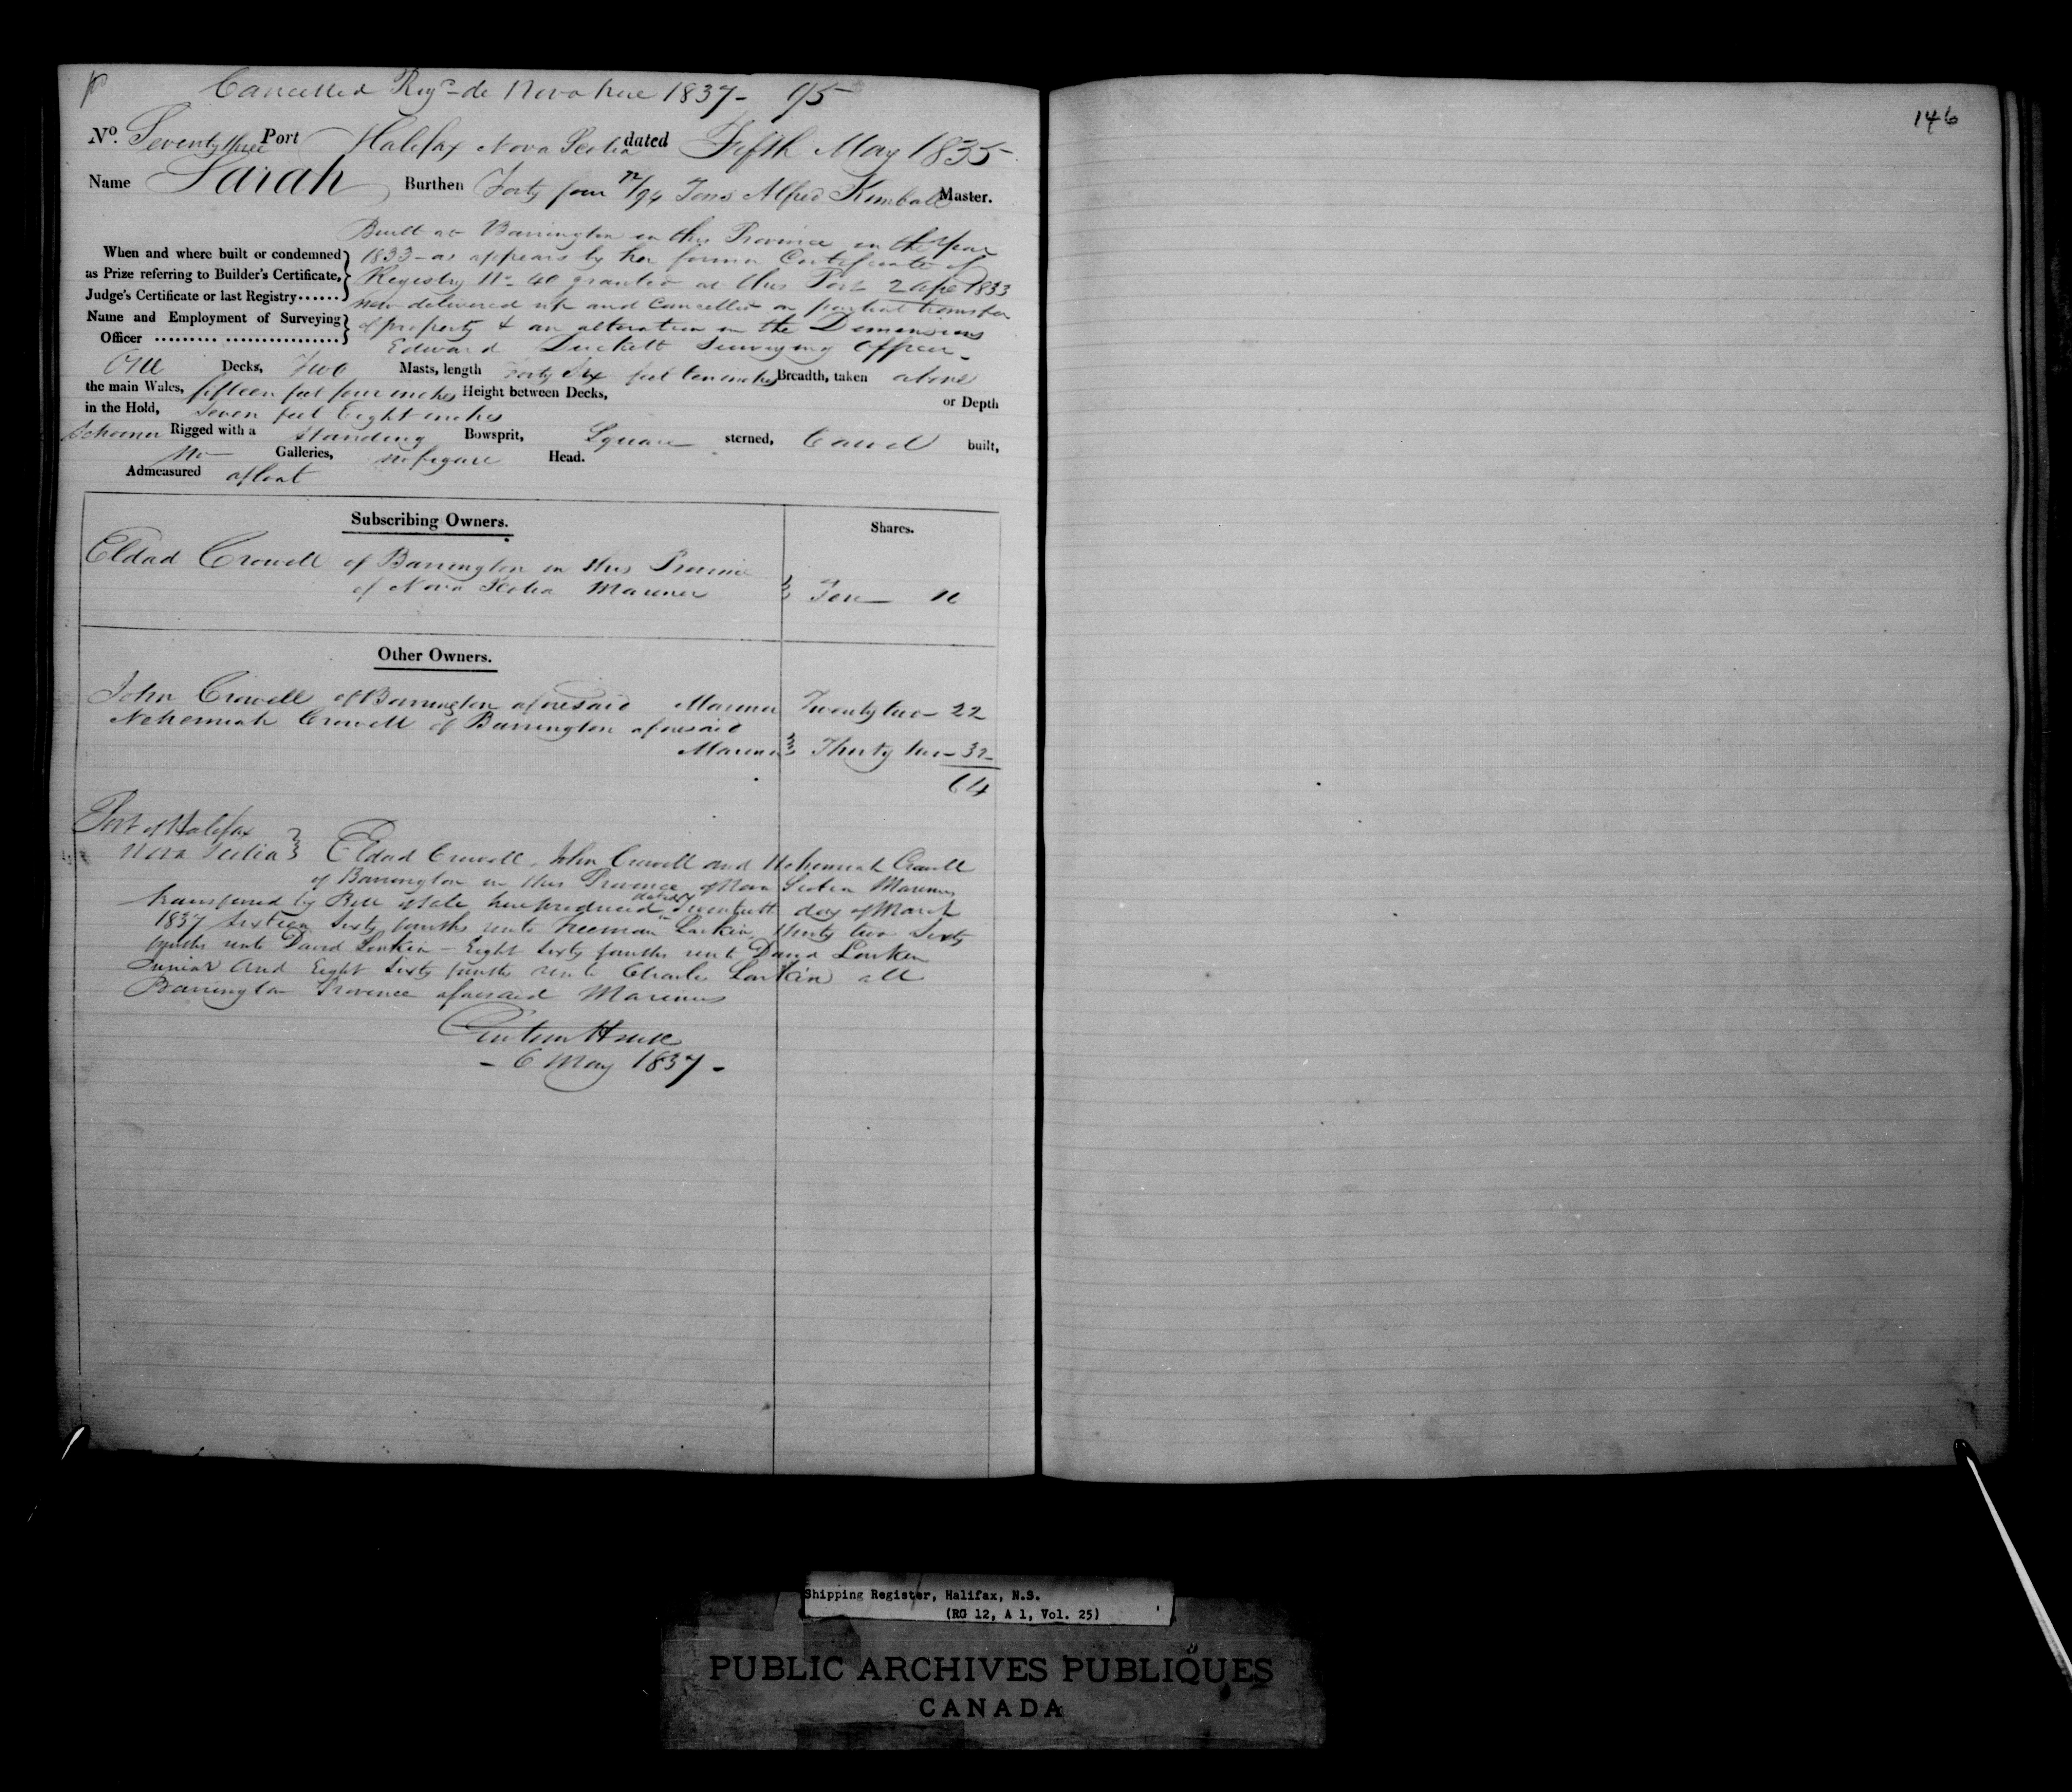 Cancelled Regd de Novo here 1837 - 95
146
No. Seventy three Port Halifax Nova Scotia dated Fifth May 1835
Name Sarah Burthen Forty four 12/94 Tons Alfred Kimball Master.
Built at Barrington in this Province in the Year
When and where built or condemned 1833 - as appears by her former Certificate of
as Prize referring to Builder's Certificate, Registry No 40 granted at this Port 2 Apl 1833
Judge's Certificate or last Registry...... now delivered up and Cancelled on partial transfer
Name and Employment of Surveying of property & an alteration in the Dimensions
Officer ......... ................. Edward Duckett Surveying Officer -
One Decks, Two Masts, length Forty Six feet ten inches Breadth, taken above
the main Wales, fifteen feet four inches Height between Decks, or Depth
in the Hold, Seven feet Eight inches
Schooner Rigged with a standing Bowsprit, Square sterned, Carvel built,
No Galleries, no figure Head.
Admeasured afloat
Subscribing Owners. Shares.
Eldad Crowell of Barrington in this Province
of Nova Scotia Mariner Ten 10
Other Owners.
John Crowell of Barrington aforesaid Mariner Twenty two - 22
Nehemiah Crowell of Barrington aforesaid
Mariner Thirty two - 32
64
Port of Halifax
Nova Scotia Eldad Crowell, John Crowell and Nehemiah Crowell
of Barrington in this Province of Nova Scotia Mariners
transferred by Bill of Sale here produced dated Twentieth day of March
1837 Sixteen Sixty fourths unto Freeman Larkin, thirty two Sixty
fourths unto David Larkin - Eight Sixty fourths unto David Larkin
Junior and Eight Sixty fourths unto Charles Larkin all
Barrington Province aforesaid Mariners
Custom House
- 6 May 1837 -
Shipping Register, Halifax, N.S.
(RG 12, A 1, Vol. 25)
PUBLIC ARCHIVES PUBLIQUES
CANADA